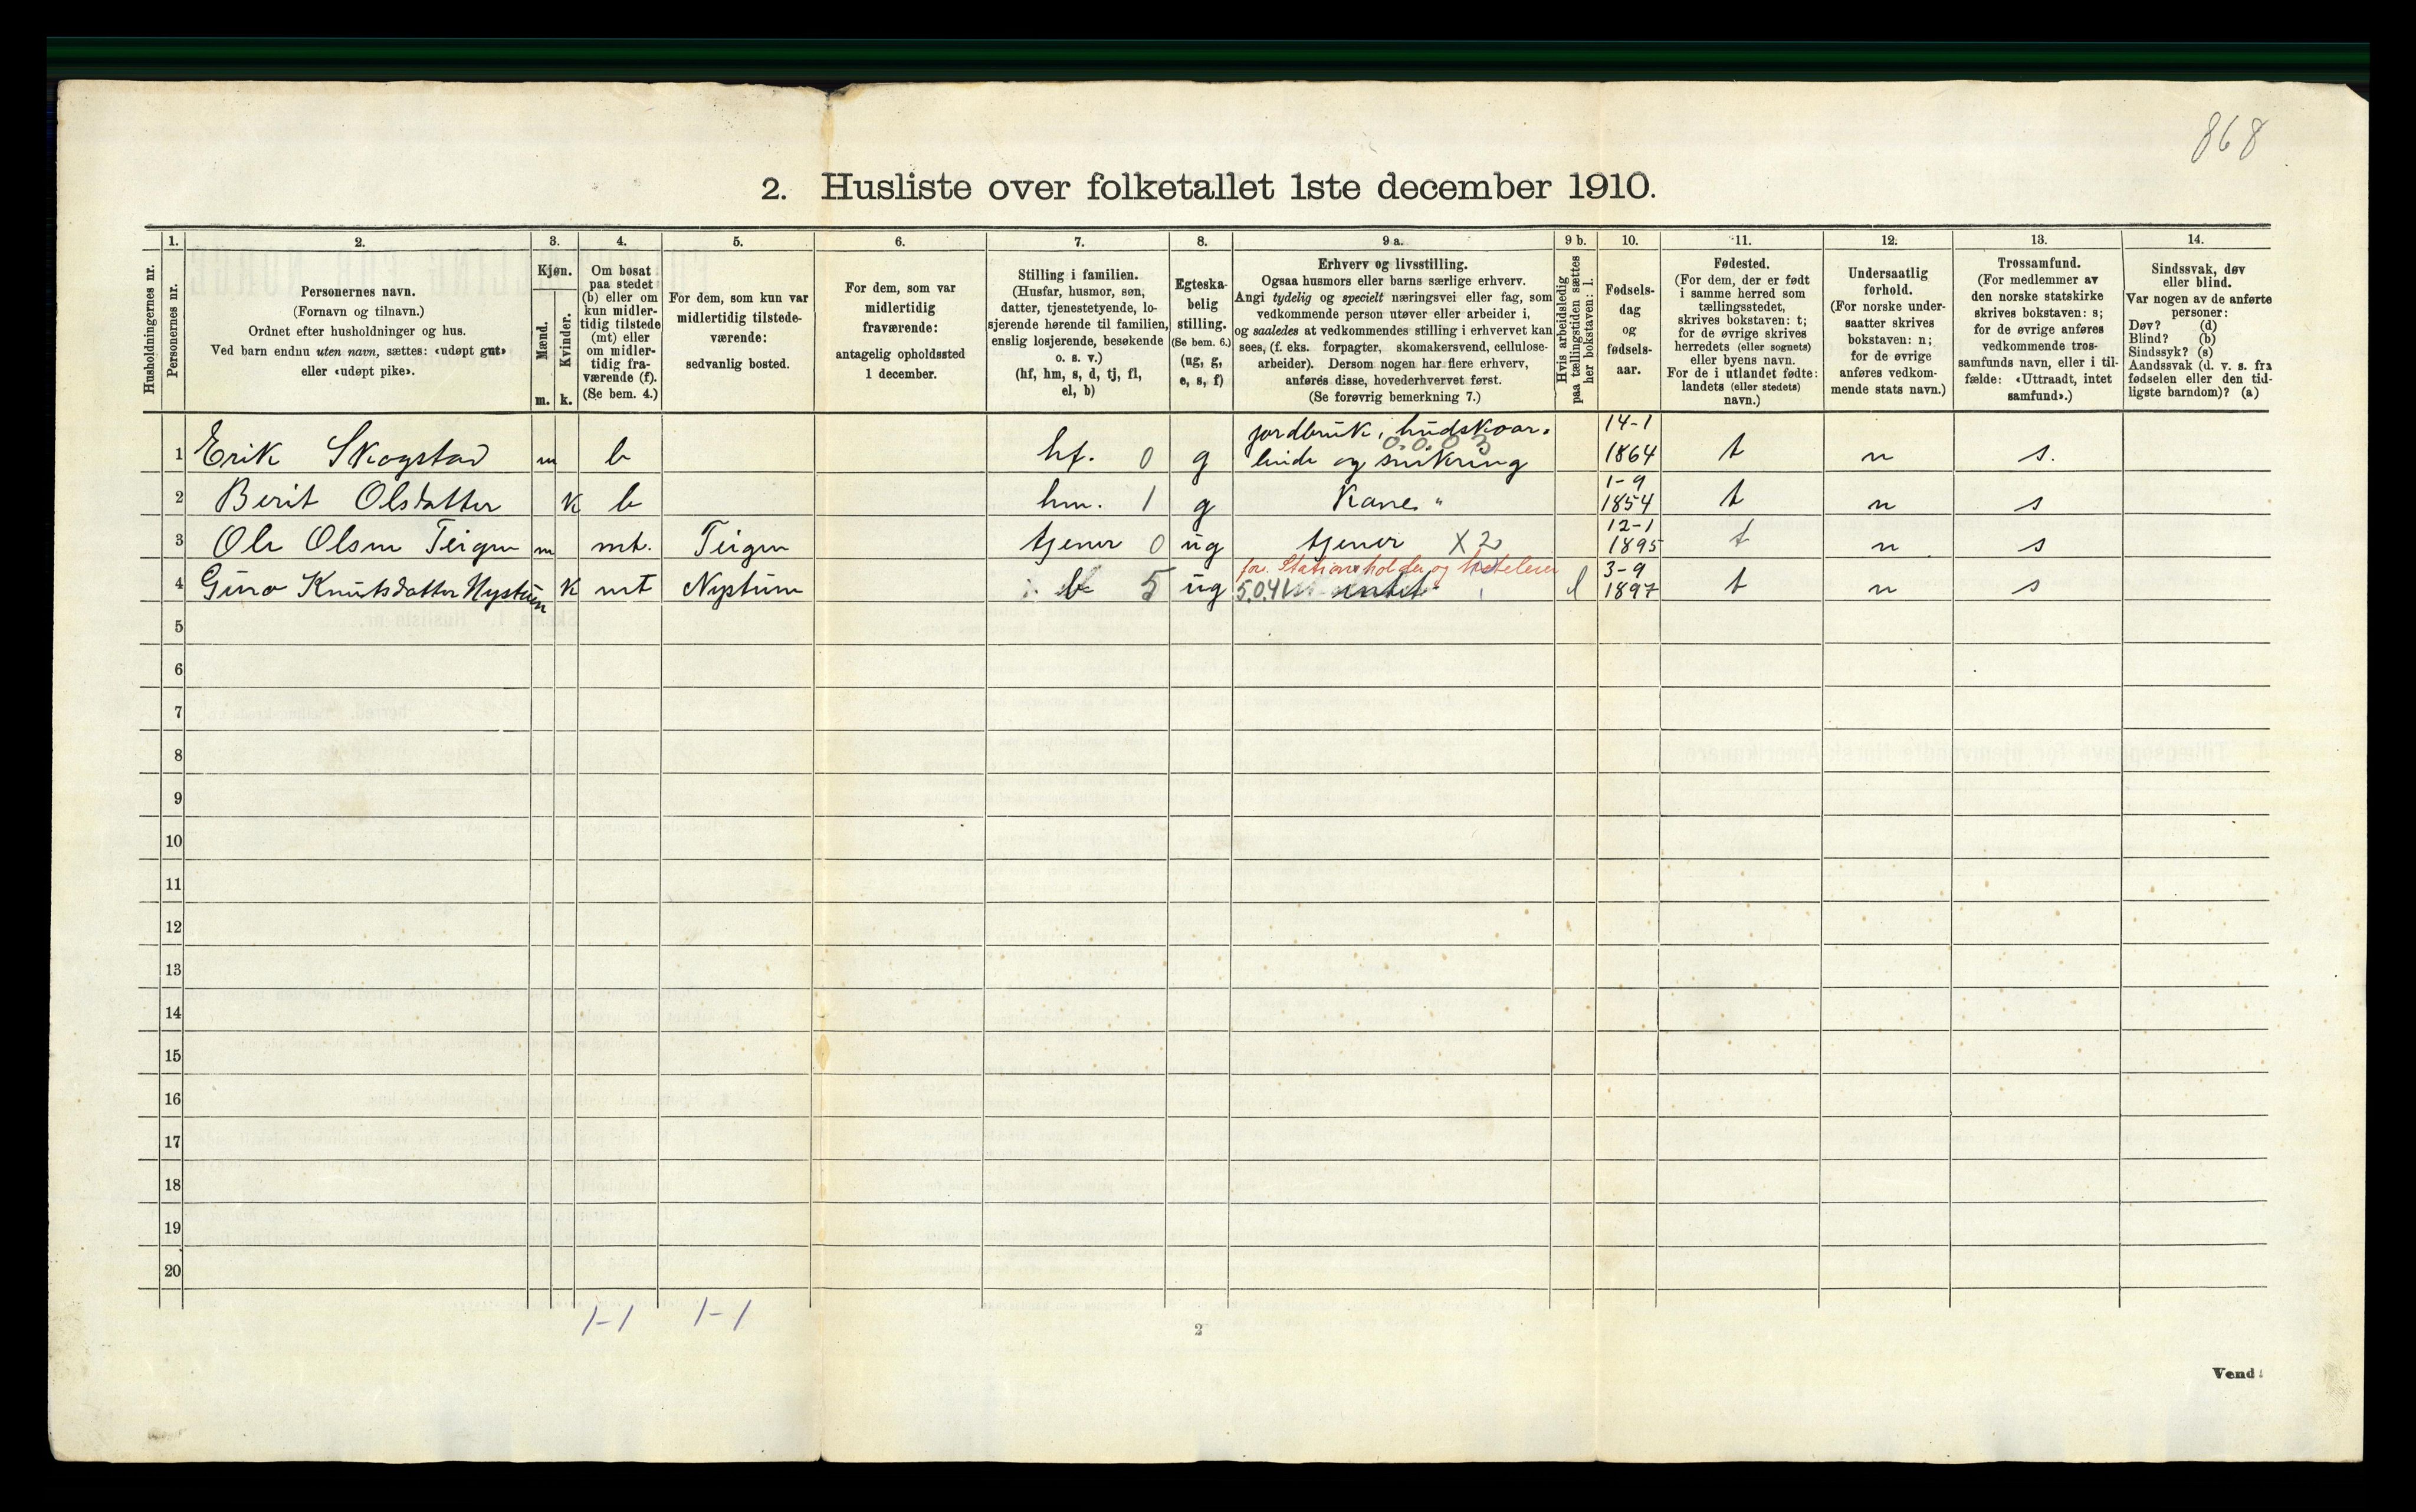 868
2. Husliste over folketallet 1ste december 1910.
Husholdningernes nr.
1.
Personernes nr.
2.
Personernes navn.
(Fornavn og tilnavn.)
Ordnet efter husholdninger og hus.
Ved barn endnu uten navn, sættes: «udøpt gut»
eller «udøpt pike».
3.
Kjøn.
Mænd.
Kvinder.
m. k.
4.
Om bosat
paa stedet
(b) eller om
kun midler-
tidig tilstede
(mt) eller
om midler-
tidig fra-
værende (f).
(Se bem. 4.)
5.
For dem, som kun var
midlertidig tilstede-
værende:
sedvanlig bosted.
6.
For dem, som var
midlertidig
fraværende:
antagelig opholdssted
1 december.
7.
Stilling i familien.
(Husfar, husmor, søn,
datter, tjenestetyende, lo-
sjerende hørende til familien,
enslig losjerende, besøkende
o. s. v.)
(hf, hm, s, d, tj, fl,
el, b)
8.
Egteska-
belig
stilling.
(Se bem. 6.)
(ug, g,
e, s, f)
9 a.
Erhverv og livsstilling.
Ogsaa husmors eller barns særlige erhverv.
Angi tydelig og specielt næringsvei eller fag, som
vedkommende person utøver eller arbeider i,
og saaledes at vedkommendes stilling i erhvervet kan
sees, (f. eks. forpagter, skomakersvend, cellulose-
arbeider). Dersom nogen har flere erhverv,
anføres disse, hovederhvervet først.
(Se forøvrig bemerkning 7.)
9 b.
Hvis arbeidsledig
paa tællingstiden sættes
her bokstaven: l.
10.
Fødsels-
dag
og
fødsels-
aar.
11.
Fødested.
(For dem, der er født
i samme herred som
tællingsstedet,
skrives bokstaven: t;
for de øvrige skrives
herredets (eller sognets)
eller byens navn.
For de i utlandet fødte:
landets (eller stedets)
navn.)
12.
Undersaatlig
forhold.
(For norske under-
saatter skrives
bokstaven: n;
for de øvrige
anføres vedkom-
mende stats navn.)
13.
Trossamfund.
(For medlemmer av
den norske statskirke
skrives bokstaven: s;
for de øvrige anføres
vedkommende tros-
samfunds navn, eller i til-
fælde: «Uttraadt, intet
samfund».)
14.
Sindssvak, døv
eller blind.
Var nogen av de anførte
personer:
Døv? (d)
Blind? (b)
Sindssyk? (s)
Aandssvak (d. v. s. fra
fødselen eller den tid-
ligste barndom)? (a)
jordbruk, hudskoar- 14-1
0.0.03
1 Erik Skogstad m b hf. 0 g og snikring 1864 t n s.
1-9
2 Berit Olsdatter k b hm. 1 g Kone " 1854 t n s
12-1
3 Ole Olsen Teigen m mt. Teigen tjener 0 ug tjener X 2 1895 t n s
Stationsholder og 3-9
4 Guro Knutsdatter Nystuen k mt Nystuen b 5 ug 5.04 intet l 1897 t n s
5
6
7
8
9
10
11
12
13
14
15
16
17
18
19
20
1-1 1-1
2
Vend!